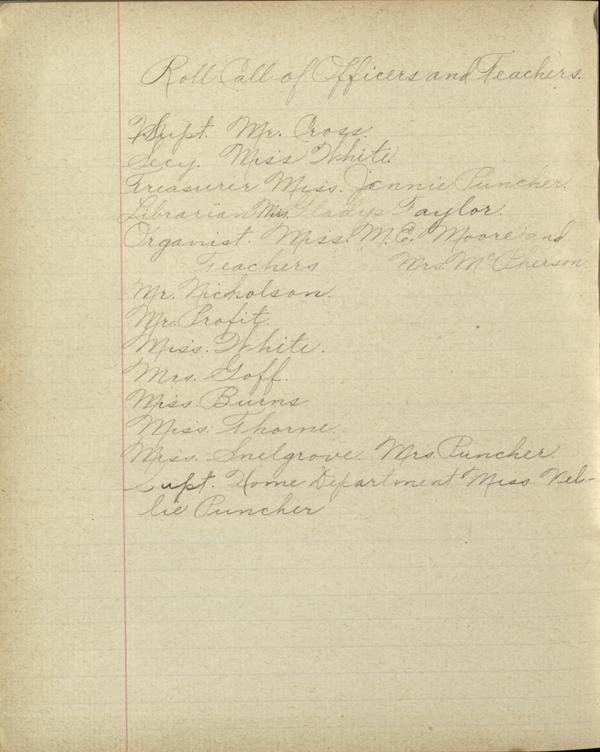 Roll Call of Officers and Teachers.
Supt. Mr. Cross.
Secy. Miss White.
Treasurer Miss. Jennie Puncher.
Librarian Mrs. Gladys Taylor.
Organist. Miss. M.E. Moore and
Teachers Mrs. McPherson.
Mr. Nicholson.
Mr. Profit.
Miss. White.
Mrs. Goff.
Miss. Burns
Miss. Thorne.
Mrs. Snelgrove. Mrs. Puncher.
Supt. Home Department Miss Nel-
lie Puncher